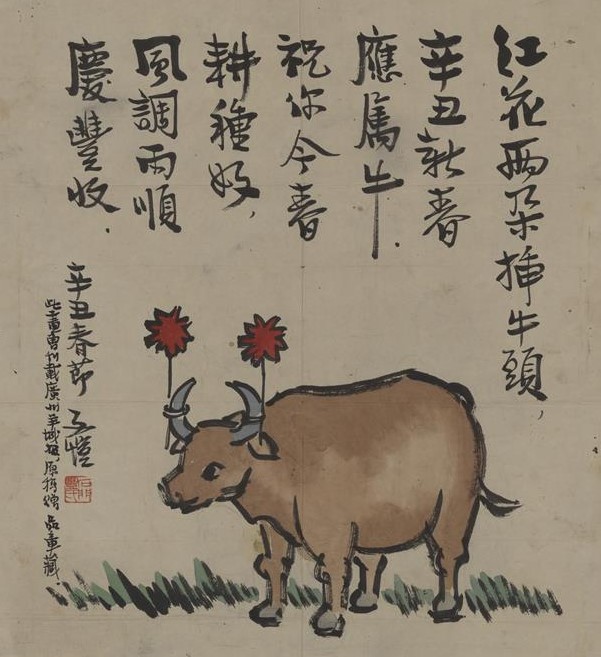 红花兩朵插牛頭，
辛丑新春
應屬牛．
祝你今春
耕種好，
風調雨順
慶豐收．
辛丑春節 子愷
此畫曾刊載廣州羊城報，原稿贈品章藏．